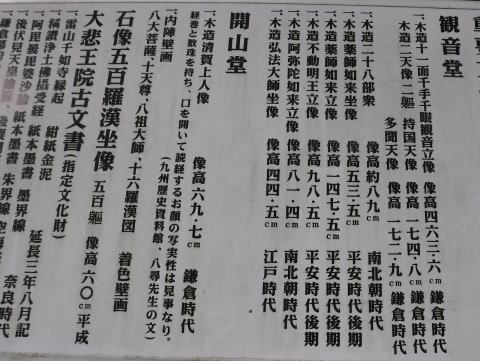 観音堂
一、木造十一面千手千眼観音立像 像高四六三・六㎝ 鎌倉時代
一、木造二天像 二軀 持国天像 像高 一七四・八㎝ 鎌倉時代
多聞天像 像高 一七二・九㎝ 鎌倉時代
一、木造二十八部衆 像高約八九㎝ 南北朝時代
一、木造薬師如来坐像 像高五三・五㎝ 平安時代後期
一、木造薬師如来立像 像高一四七・五㎝ 平安時代後期
一、木造不動明王立像 像高九八・五㎝ 平安時代後期
一、木造阿弥陀如来立像 像高八一・四㎝ 南北朝時代
一、木造弘法大師坐像 像高四四・五㎝ 江戸時代
開山堂
一、木造清賀上人像 像高六九・七㎝ 鎌倉時代
経巻と数珠を持ち、口を開いて読経するお顔の写実性は見事なり。
(九州歴史資料館、八尋先生の文)
一、内陣壁画
八大菩薩、十天尊、八祖大師、十六羅漢図 着色壁画
石像五百羅漢坐像 五百軀 像高 六〇㎝ 平成
大悲王院古文書(指定文化財)
一、雷山千如寺縁起 紺紙金泥
一、稱讃浄土佛攝受経 紙本墨書 墨界線 延長三年八月記
一、阿毘曇毘婆沙論 紙本墨書 朱界線 奈良時代
一、後伏見天皇